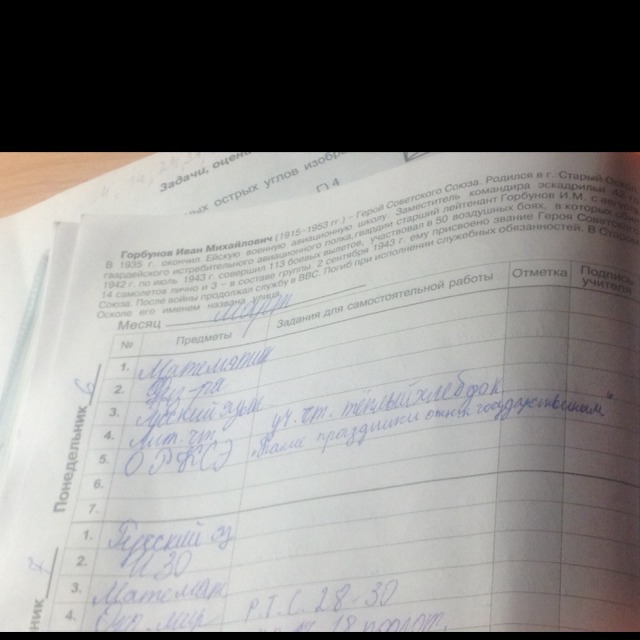 Задачи, оцен
ых острых углов изобр
Горбунов Иван Михайлович (1915–1953 гг.) – Герой Советского Союза. Родился в г. Старый Оскол
В 1935 г. окончил Ейскую военную авиационную школу. Заместитель командира эскадрильи
гвардейского истребительного авиационного полка, гвардии старший лейтенант Горбунов И.М. с
1942 г. по июль 1943 г. совершил 113 боевых вылетов, участвовал в 50 воздушных боях, в которых сбил
14 самолетов лично и 3 – в составе группы. 2 сентября 1943 г. ему присвоено звание Героя Советского
Союза. После войны продолжал службу в ВВС. Погиб при исполнении служебных обязанностей. В Старом
Осколе его именем названа
Месяц
№ Предметы Задания для самостоятельной работы Отметка Подпись учителя
Понедельник 6
1. Математик
2. Физ-ра
3. Русский язык
4. Лит. чт. уч. чт. тёплый хлеб
5. ОРКСЭ "Какие праздники государственным"
6.
7.
1. Русский яз
2. ИЗО
3. Математ
4. Окр. мир Р.Т. С. 28-30
ник